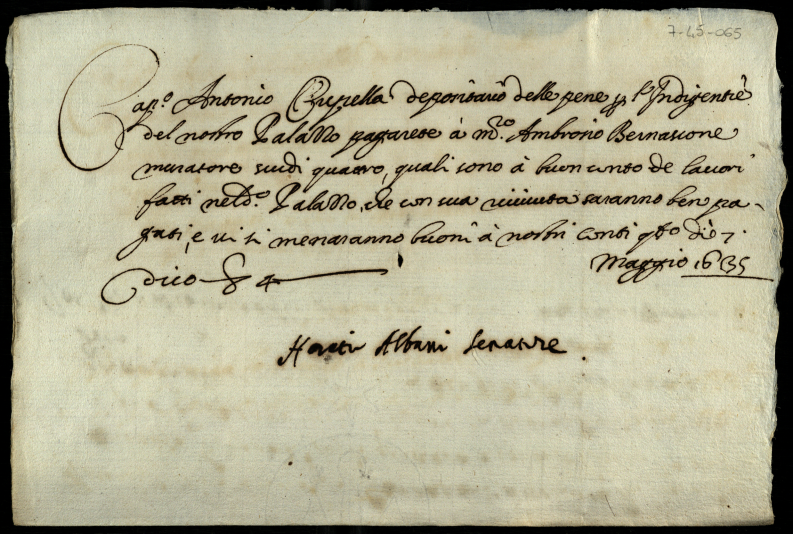 7-45-065
Cap.º Antonio Crivella depositario delle pene p l'Indigentie
del nostro Palazzo pagarete à m.ro Ambrosio Bernascone
muratore scudi quattro, quali sono à buon conto de lavori
fatti nel d.º Palazzo, che con sua ricevuta saranno ben pa-
gati, e vi si menaranno buoni à nostri conti q.to dì 7.
Maggio 1635
Dico 4
Horatio Albani Senatore.